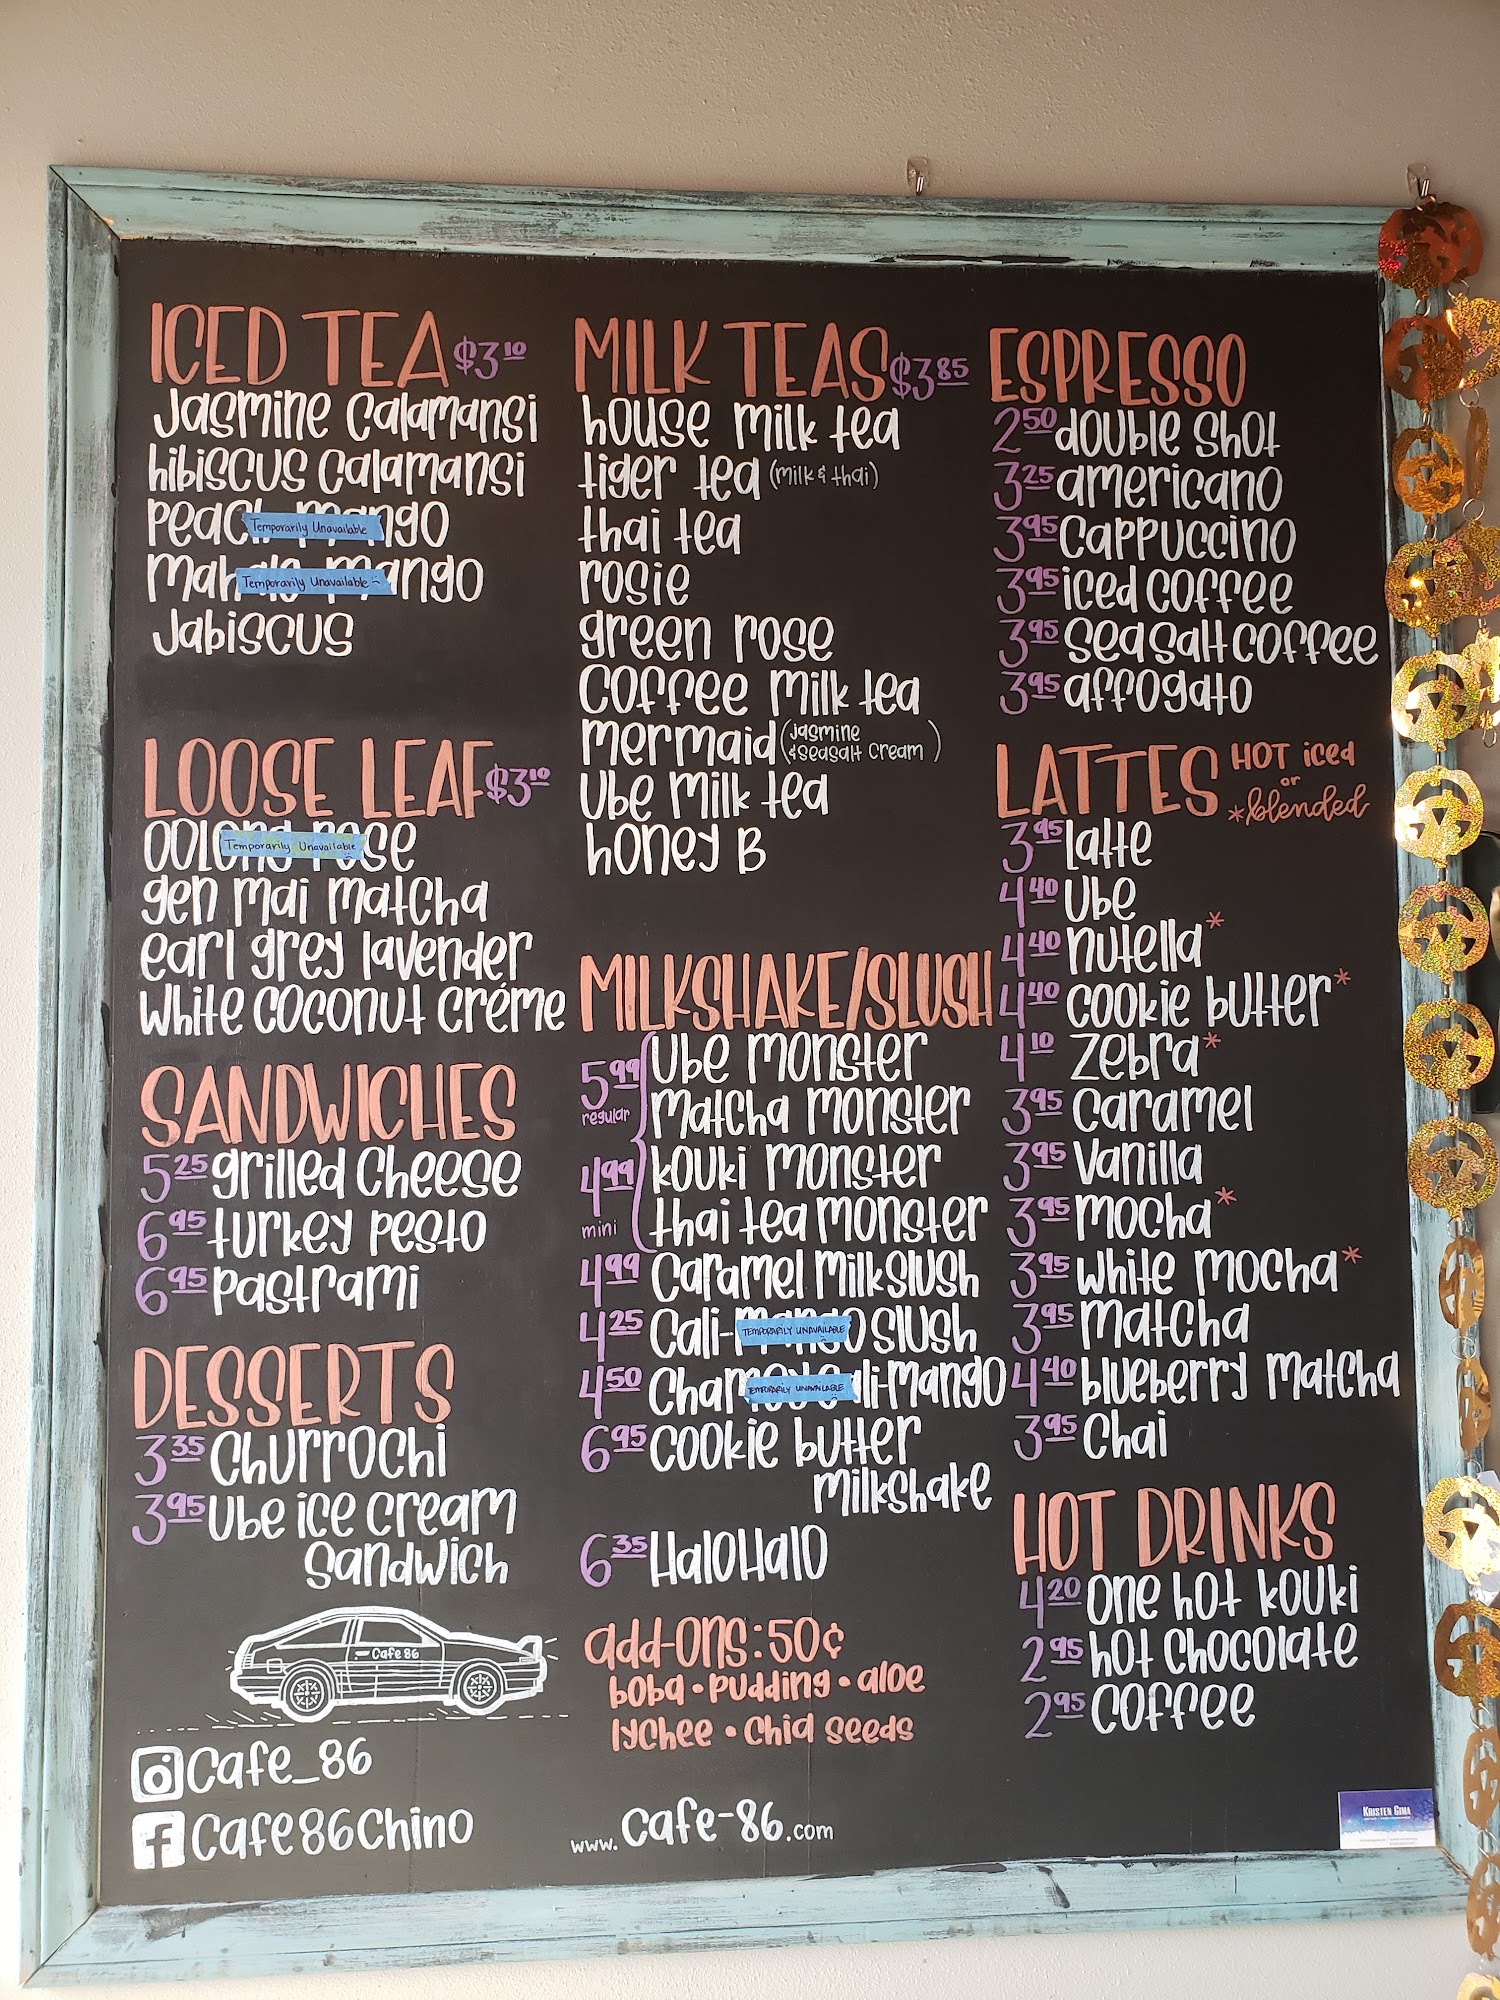 ICED TEA $3.10
Jasmine Calamansi
hibiscus Calamansi
Temporarily Unavailable
Temporarily Unavailable
Jabiscus
LOOSE LEAF $3.10
Temporarily Unavailable
gen mai matcha
earl grey lavender
white coconut créme
SANDWICHES
5.25 grilled cheese
6.95 turkey pesto
6.95 pastrami
DESSERTS
3.35 Churrochi
3.95 Ube ice cream
Sandwich
Cafe 86
Cafe_86
Cafe86Chino
MILK TEAS $3.85
house milk tea
tiger tea (milk & thai)
thai tea
rosie
green rose
coffee milk tea
mermaid (jasmine
& seasalt cream)
Ube milk tea
honey B
MILKSHAKE/SLUSH
5.99 Ube monster
regular matcha monster
4.99 kouki monster
mini thai tea monster
4.99 Caramel milkslush
4.25 Cali- TEMPORARILY UNAVAILABLE slush
4.50 TEMPORARILY UNAVAILABLE mango
6.95 cookie butter
milkshake
6.35 HaloHalo
add-ons: 50¢
boba • pudding • aloe
lychee • chia seeds
www.cafe-86.com
ESPRESSO
2.50 double shot
3.25 americano
3.95 Cappuccino
3.95 iced coffee
3.95 seasalt coffee
3.95 affogato
LATTES HOT iced
or
*blended
3.95 latte
4.40 Ube
4.40 nutella*
4.40 cookie butter*
4.10 zebra*
3.95 caramel
3.95 vanilla
3.95 mocha*
3.95 white mocha*
3.95 matcha
4.40 blueberry matcha
3.95 Chai
HOT DRINKS
4.20 one hot kouki
2.95 hot chocolate
2.95 coffee
KRISTEN GIMA